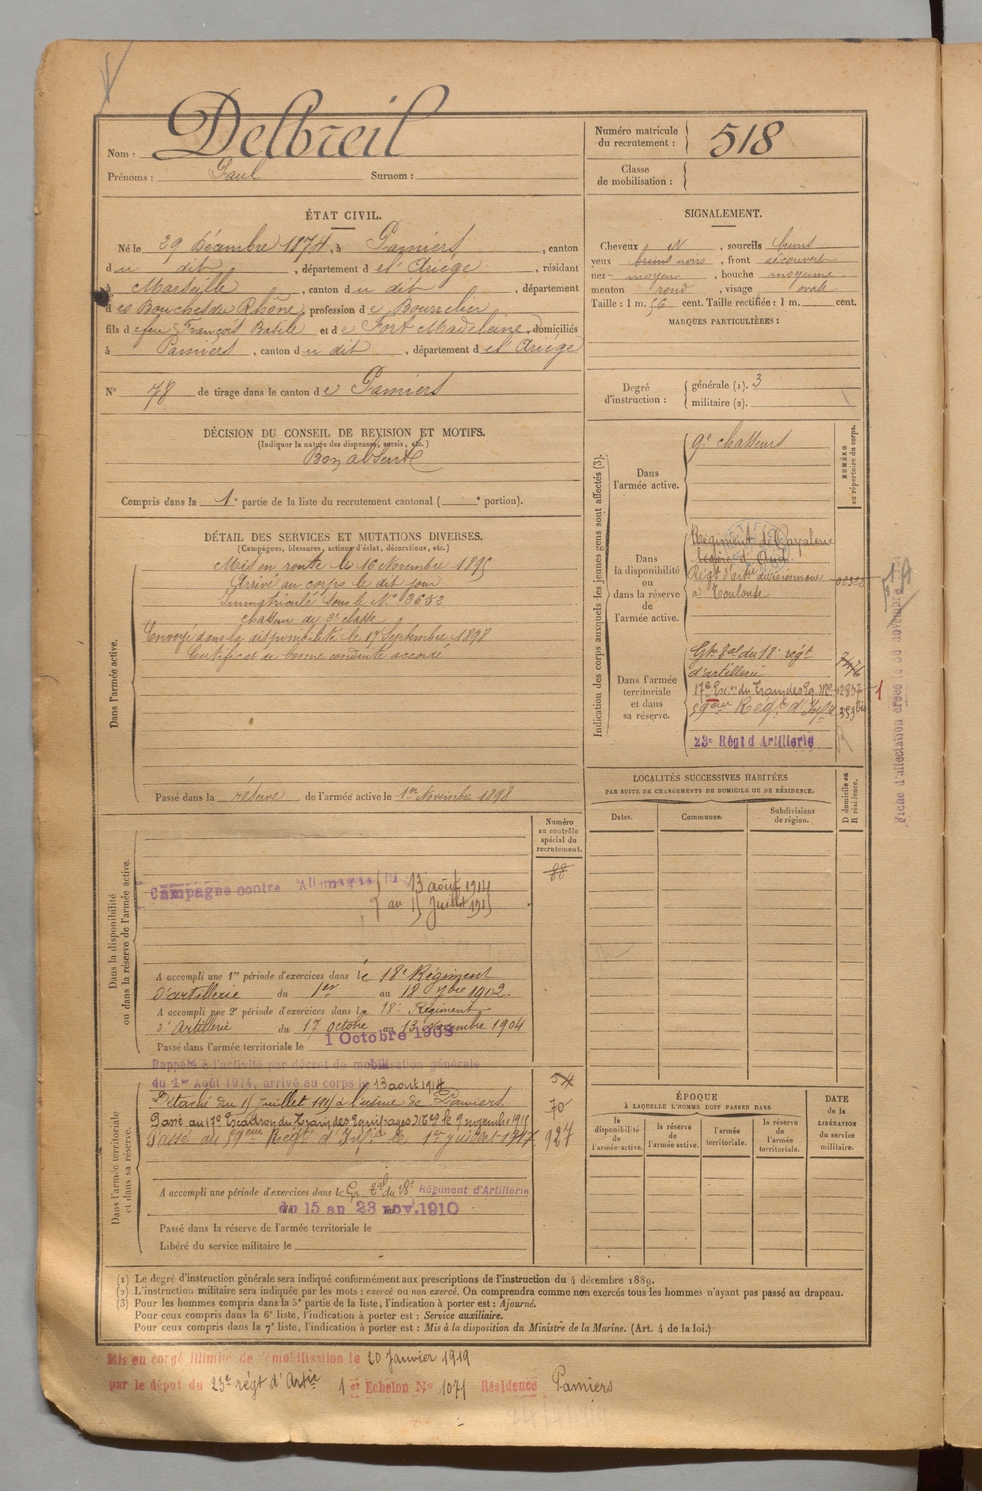 Nom : Delbreil
Prénoms : Paul Surnom :
Numéro matricule du recrutement : 518
Classe de mobilisation :
ÉTAT CIVIL.
Né le 29 Décembre 1874, à Pamiers, canton
du dit, département de l'Ariège, résidant
à Marseille, canton du dit, département
des Bouches du Rhône, profession de Bourrelier
fils de feu François Basile et de Fort Madeleine, domiciliés
à Pamiers, canton du dit, département de l'Ariège
N° 78 de tirage dans le canton de Pamiers
SIGNALEMENT.
Cheveux N, sourcils bruns
yeux bruns noirs, front découvert
nez moyen, bouche moyenne
menton rond, visage ovale
Taille : 1 m. 56 cent. Taille rectifiée : 1 m. cent.
MARQUES PARTICULIÈRES :
Degré d'instruction : générale (1). 3
militaire (2).
DÉCISION DU CONSEIL DE REVISION ET MOTIFS.
(Indiquer la nature des dispenses, sursis, etc.)
Bon absent
Compris dans la 1e partie de la liste du recrutement cantonal ( e portion).
DÉTAIL DES SERVICES ET MUTATIONS DIVERSES.
(Campagnes, blessures, actions d'éclat, décorations, etc.)
Dans l'armée active.
Mis en route le 16 Novembre 1895
Arrivé au corps le dit jour
Immatriculé sous le N° 3652
chasseur de 2e classe
Envoyé dans la disponibilité le 17 Septembre 1898
Certificat de bonne conduite accordé
Passé dans la réserve de l'armée active le 1er Novembre 1898
Indication des corps auxquels les jeunes gens sont affectés (3).
NUMÉRO au répertoire du corps.
Dans l'armée active.
9e chasseurs
Dans la disponibilité ou dans la réserve de l'armée active.
Régiment de Cavalerie
légère d'Auch
Régt d'artie divisionnaire
à Toulouse
Dans l'armée territoriale et dans sa réserve.
Gpe tal du 18e régt
d'artillerie
17e Esc. du Train des Eq. Mres
59eme Reg. d'Infie
23e Régt d'Artillerie
Fiche d'affectation créée le 30 novembre
LOCALITÉS SUCCESSIVES HABITÉES
PAR SUITE DE CHANGEMENTS DE DOMICILE OU DE RÉSIDENCE.
Dates. Communes. Subdivisions de région. D domicile ou R résidence.
Numéro au contrôle spécial du recrutement.
88
Dans la disponibilité ou dans la réserve de l'armée active.
Campagne contre Allemagne du 13 août 1914
au 15 Juillet 1915
A accompli une 1re période d'exercices dans le 18e Régiment
d'artillerie du 1er au 18 7bre 1902.
A accompli une 2e période d'exercices dans le 18e Régiment
d'Artillerie du 17 octobre au 13 Novembre 1904
Passé dans l'armée territoriale le 1 Octobre 1908
Dans l'armée territoriale et dans sa réserve.
Rappelé à l'activité par décret de mobilisation générale
du 1er Août 1914, arrivé au corps le 13 août 1914
Détaché du 15 Juillet 1915 à l'usine de Pamiers
Passé au 17e Escadron du Train des Equipages Mres le 9 novembre 1915
Passé au 59eme Régt d'Infie le 1er juillet 1917
54
70
927
A accompli une période d'exercices dans le Gr. tal du 18e Régiment d'Artillerie
du 15 au 23 nov. 1910
Passé dans la réserve de l'armée territoriale le
Libéré du service militaire le
ÉPOQUE
À LAQUELLE L'HOMME DOIT PASSER DANS
la disponibilité de l'armée active. la réserve de l'armée active. l'armée territoriale. la réserve de l'armée territoriale.
DATE de la LIBÉRATION du service militaire.
(1) Le degré d'instruction générale sera indiqué conformément aux prescriptions de l'instruction du 4 décembre 1889.
(2) L'instruction militaire sera indiquée par les mots : exercé ou non exercé. On comprendra comme non exercés tous les hommes n'ayant pas passé au drapeau.
(3) Pour les hommes compris dans la 5e partie de la liste, l'indication à porter est : Ajourné.
Pour ceux compris dans la 6e liste, l'indication à porter est : Service auxiliaire.
Pour ceux compris dans la 7e liste, l'indication à porter est : Mis à la disposition du Ministre de la Marine. (Art. 4 de la loi.)
Mis en congé illimité de démobilisation le 20 Janvier 1919
par le dépôt du 23e régt d'Artie 1er Echelon N° 1071 Résidence Pamiers